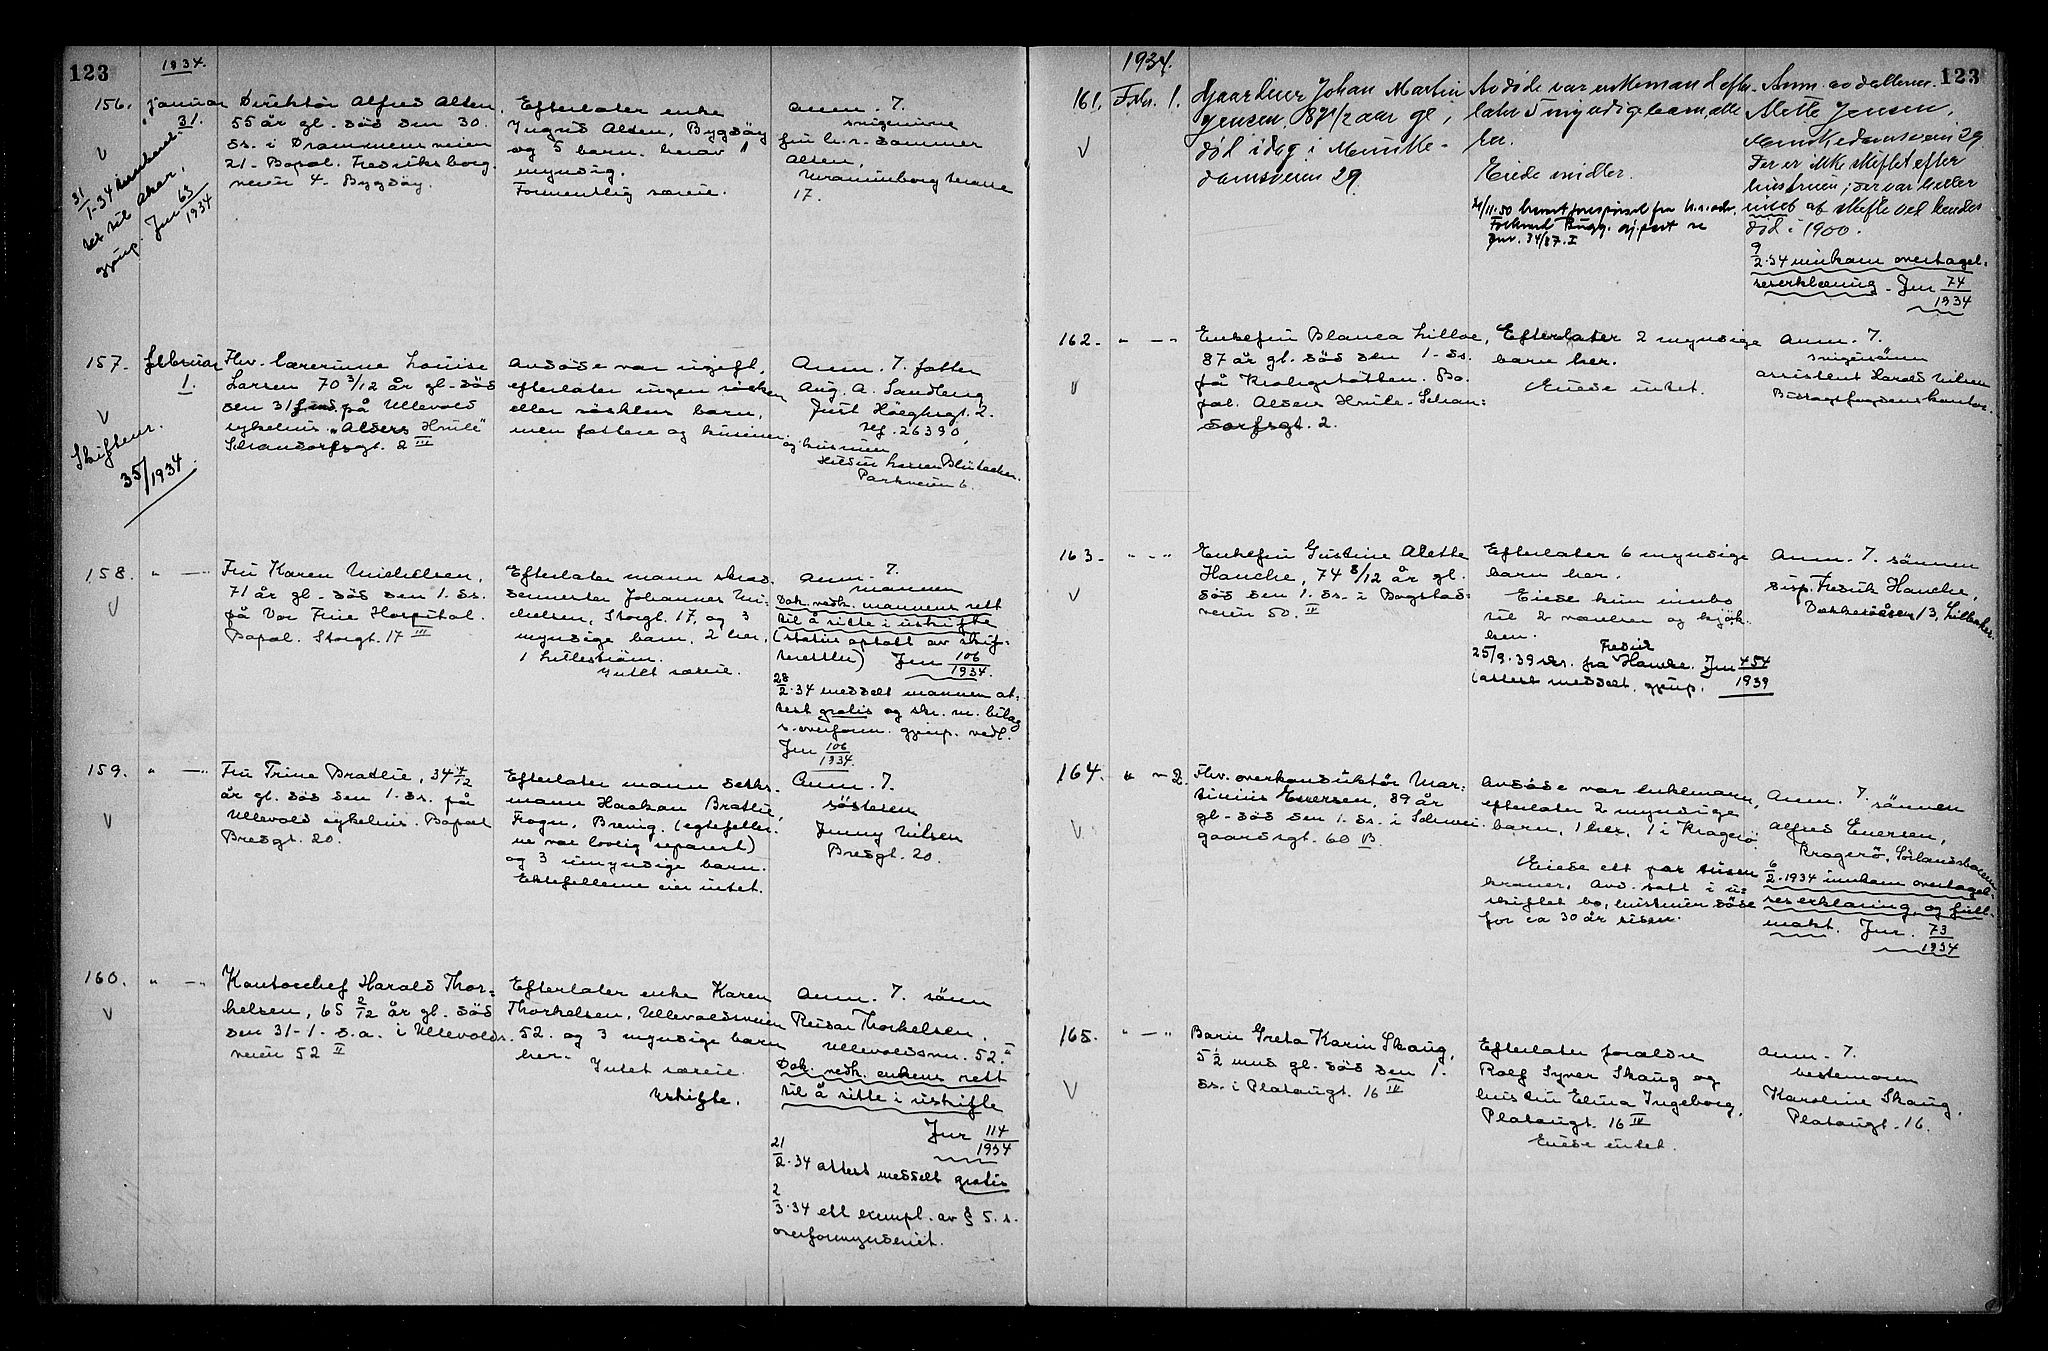 123
1934.
156. Januar 31.
31/1-34
til Aker,
gjenp. Jnr 63/1934
Direktør Alfred Alsen
55 år gl. död den 30.
ds. i Drammensveien
21. Bopal. Fredriksborg-
veien 4. Bygdöy.
Efterlater enke
Ingrid Alsen, Bygdöy
og 5 barn. herav 1
myndig.
Formentlig særeie.
Anm. 7.
svigerinne
fru h.r.dommer
Alsen,
Uranienborg terasse
17.
157. februar 1.
Skiftenr.
35/1934
Fhv. lærerinne Louise
Larsen 70 3/12 år gl. död
den 31 f.md. på Ullevold
sykehus. "Alders Hvile"
Schandorfsgt. 2 III
Avdöde var ugift,
efterlater ingen söken
eller söskens barn,
men fettere og kusiner.
Anm. 7. fetter
Aug. A. Sandberg
Just Höeghsgt. 2.
tlf. 26390,
og kusinen
Parkveien 6.
158. " — "
Fru Karen Michelsen,
71 år gl. död den 1. ds.
på Vor Frue Hospital.
Bopal. Storgt. 17 III
Efterlater mann skred-
dermester Johannes Mi-
chelsen, Storgt. 17, og 3
myndige barn, 2 her,
1 Lillestrøm.
Intet særeie.
Anm. 7.
mannen
Dok. vedk. mannens rett
til å sitte i uskifte
(status optatt av skif-
teretten) Jnr 106/1934.
28/2.34 meddelt mannen at-
test gratis og skr. m. bilag
t. overform. gjenp. vedl.
Jnr 106/1934.
159. " — "
Fru Trine Bratlie, 34 4/12
år gl. död den 1. ds. på
Ullevold sykehus. Bopal
Bredgt. 20.
Efterlater mann dekks-
mann Haakon Bratlie,
Frogn, (egtefelle-
ne var lovlig separert)
og 3 umyndige barn.
Ektefellene eier intet.
Anm. 7.
søsteren
Jenny Nilsen
Bredgt. 20.
160. " — "
Kontorchef Harald Thor-
kelsen, 65 2/12 år gl. död
den 31-1. d.a. i Ullevolds-
veien 52 II
Efterlater enke Karen
Thorkelsen, Ullevoldsveien
52. og 3 myndige barn
her.
Intet særeie.
Uskifte.
Anm. 7. sönn
Reidar Thorkelsen,
Ullevoldsvn. 52 II
Dok. vedk. enkens rett
til å sitte i uskifte
Jnr 114/1934
21/2.34 attest meddelt gratis
2/3.34 ett exempl. av § 5. s.
overformynderiet.
123
1934.
161. Febr. 1.
Gaardeier Johan Martin
Jensen, 87 1/2 aar gl.,
död idag i Munke-
damsveien 29.
Avdøde var enkemand efter-
later 5 myndige barn, alle
her.
Eiede midler.
21/11.50 besvart forespørsel fra h.r.adv.
Bugge
Jnr. 34/87. I
Anm. av datteren
Alette Jensen,
Munkedamsveien 29
Der er ikke skiftet efter
hustruen; der var heller
intet at skifte ved hendes
död i 1900.
9/2.34 innkom overtagel-
seserklæring. Jnr 74/1934
162. " — "
Enkefru Blanca Lilloe,
87 år gl. död den 1. ds.
på Krohgstötten. Bo-
pal. Alders Hvile. Schan-
dorfsgt. 2.
Efterlater 2 myndige
barn her.
Eiede intet.
Anm. 7.
svigersönn
assistent Harald Nilsen
Bidragsfogdens kontor.
163. " — "
Enkefru Gustine Alette
Hancke, 74 8/12 år gl.
död den 1. ds. i Bogstad-
veien 50. II
Efterlater 6 myndige
barn her.
Eiede kun innbo
til 2 værelser og kjök-
ken.
25/9.39 skr. fra Fredrik Hancke. Jnr 454/1939
(attest meddelt, gjenp.
Anm. 7. sönnen
disp. Fredrik Hancke,
Vækkeröåsen 13, Lilleaker.
164. " — 2.
Fhv. overkonduktör Mar-
tinius Evensen, 89 år
gl. död den 1. ds. i Schwei-
gaardsgt. 60 B.
Avdöde var enkemann,
efterlater 2 myndige
barn, 1 her, 1 i Kragerö.
Eiede ett par tusen
kroner. Avd. satt i u-
skiftet bo, hustruen döde
for ca 30 år siden.
Anm. 7. sönnen
Alfred Evensen,
Kragerö, Sörlandsbanen
6/2.1934 innkom overtagel-
seserklæring og full-
makt. Jnr. 73/1934
165. " — "
Barn Greta Karin Skaug,
5 1/2 mnd gl. död den 1.
ds. i Plataugt. 16 IV
Efterlater foreldre
Rolf Syver Skaug og
hustru Elina Ingeborg,
Plataugt. 16 IV
Eiede intet.
Anm. 7.
bestemoren
Karoline Skaug,
Plataugt. 16.